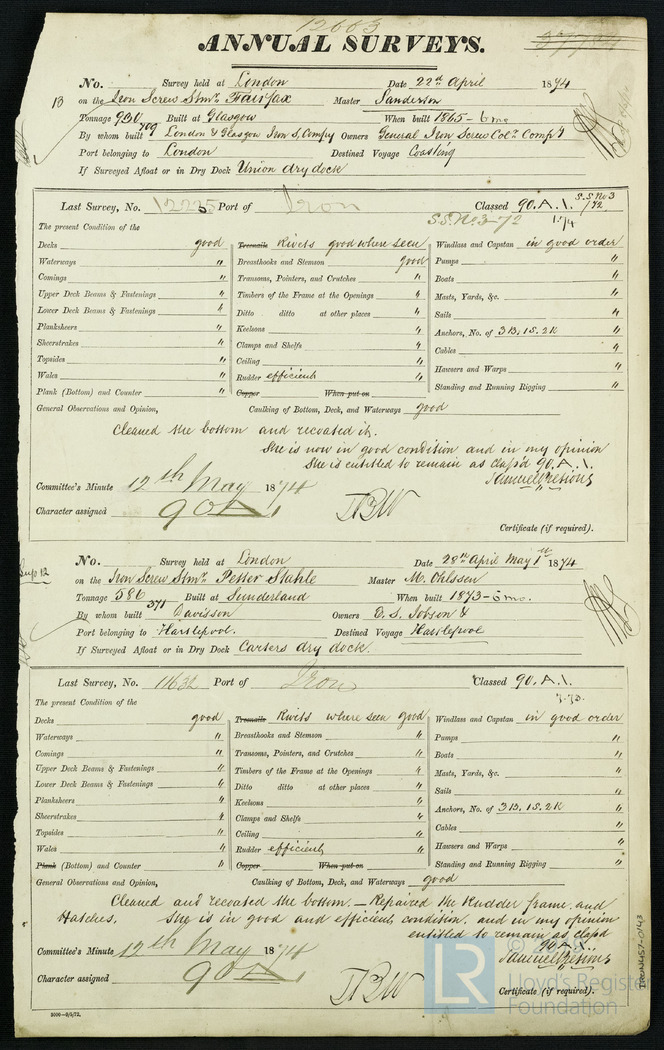 12663
ANNUAL SURVEYS.
No. Survey held at London Date 22nd April 1874
13 on the Iron Screw Stmr Fairfax Master Sanderson
Tonnage 930 709 Built at Glasgow When built 1865 - 6 mo
By whom built London & Glasgow Iron S, Compy Owners General Iron Screw Coll. Compy
Port belonging to London Destined Voyage Coasting
If Surveyed Afloat or in Dry Dock Union dry dock
Last Survey, No. 12225 Port of Iron Classed 90. A. 1. S.S. No 3 /72
S.S. No 3-72 1.74
The present Condition of the
Decks good
Waterways "
Comings "
Upper Deck Beams & Fastenings "
Lower Deck Beams & Fastenings "
Planksheers "
Sheerstrakes "
Topsides "
Wales "
Plank (Bottom) and Counter "
Treenails Rivets good where seen
Breasthooks and Stemson good
Transoms, Pointers, and Crutches "
Timbers of the Frame at the Openings "
Ditto ditto at other places "
Keelsons "
Clamps and Shelfs "
Ceiling "
Rudder efficient "
Copper When put on
Windlass and Capstan in good order
Pumps "
Boats "
Masts, Yards, &c. "
Sails "
Anchors, No. of 3 B, 1 S. 2 K "
Cables "
Hawsers and Warps "
Standing and Running Rigging "
General Observations and Opinion, Caulking of Bottom, Deck, and Waterways good
Cleaned the bottom and recoated it.
She is now in good condition and in my opinion
She is entitled to remain as class'd 90. A. 1.
Committee's Minute 12th May 1874
Character assigned 90 A 1
Certificate (if required).
No. Survey held at London Date 28th April May 1st 1874
on the Iron Screw Stmr Petter Stahle Master M. Ohlssen
Tonnage 586 371 Built at Sunderland When built 1873 - 5 mo.
By whom built Davisson Owners E. S. Jobson &
Port belonging to Hartlepool. Destined Voyage Hartlepool
If Surveyed Afloat or in Dry Dock Carters dry dock.
Last Survey, No. 11632 Port of Iron Classed 90. A. 1.
7.73.
The present Condition of the
Decks good
Waterways "
Comings "
Upper Deck Beams & Fastenings "
Lower Deck Beams & Fastenings "
Planksheers "
Sheerstrakes "
Topsides "
Wales "
Plank (Bottom) and Counter "
Treenails Rivets where seen good
Breasthooks and Stemson "
Transoms, Pointers, and Crutches "
Timbers of the Frame at the Openings "
Ditto ditto at other places "
Keelsons "
Clamps and Shelfs "
Ceiling "
Rudder efficient "
Copper When put on
Windlass and Capstan in good order
Pumps "
Boats "
Masts, Yards, &c. "
Sails "
Anchors, No. of 3 B, 1 S. 2 K "
Cables "
Hawsers and Warps "
Standing and Running Rigging "
General Observations and Opinion, Caulking of Bottom, Deck, and Waterways good
Cleaned and recoated the bottom. - Repaired the Rudder frame and
Hatches, She is in good and efficient condition, and in my opinion
entitled to remain as class'd
90. A. 1.
Committee's Minute 12th May 1874
Character assigned 90 A
Certificate (if required).
3000-9/5/72.
IRON457-0143
© LR Lloyd's Register Foundation